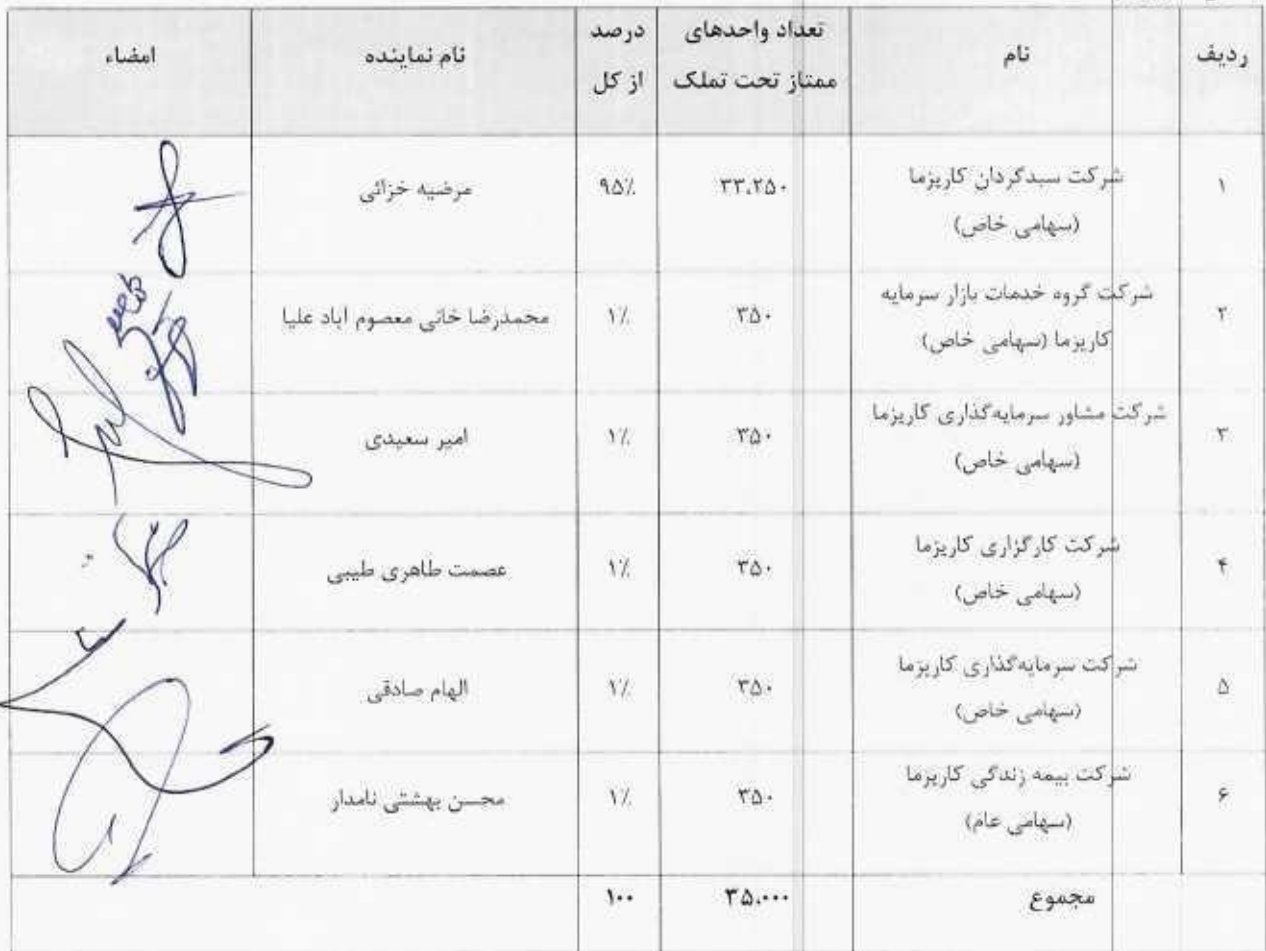 ردیف
نام
تعداد واحدهای
ممتاز تحت تملک
درصد
از کل
نام نماینده
امضاء
۱
شرکت سبدگردان کاریزما
(سهامی خاص)
۳۳،۲۵۰
۹۵٪
مرضیه خزائی
۲
شرکت گروه خدمات بازار سرمایه
کاریزما (سهامی خاص)
۳۵۰
۱٪
محمدرضا خانی معصوم اباد علیا
۳
شرکت مشاور سرمایه‌گذاری کاریزما
(سهامی خاص)
۳۵۰
۱٪
امیر سعیدی
۴
شرکت کارگزاری کاریزما
(سهامی خاص)
۳۵۰
۱٪
عصمت طاهری طیبی
۵
شرکت سرمایه‌گذاری کاریزما
(سهامی خاص)
۳۵۰
۱٪
الهام صادقی
۶
شرکت بیمه زندگی کاریزما
(سهامی عام)
۳۵۰
۱٪
محسن بهشتی نامدار
مجموع
۳۵،۰۰۰
۱۰۰